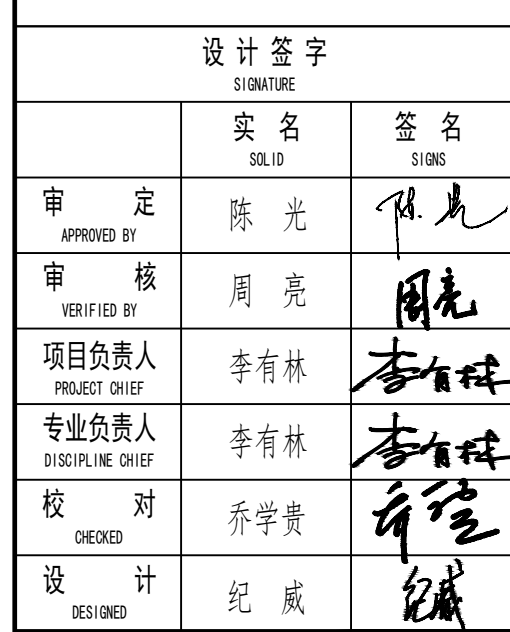 设 计 签 字
SIGNATURE
实 名
SOLID
签 名
SIGNS
审 定
APPROVED BY
陈 光
陈光
审 核
VERIFIED BY
周 亮
周亮
项目负责人
PROJECT CHIEF
李有林
李有林
专业负责人
DISCIPLINE CHIEF
李有林
李有林
校 对
CHECKED
乔学贵
设 计
DESIGNED
纪 威
纪威